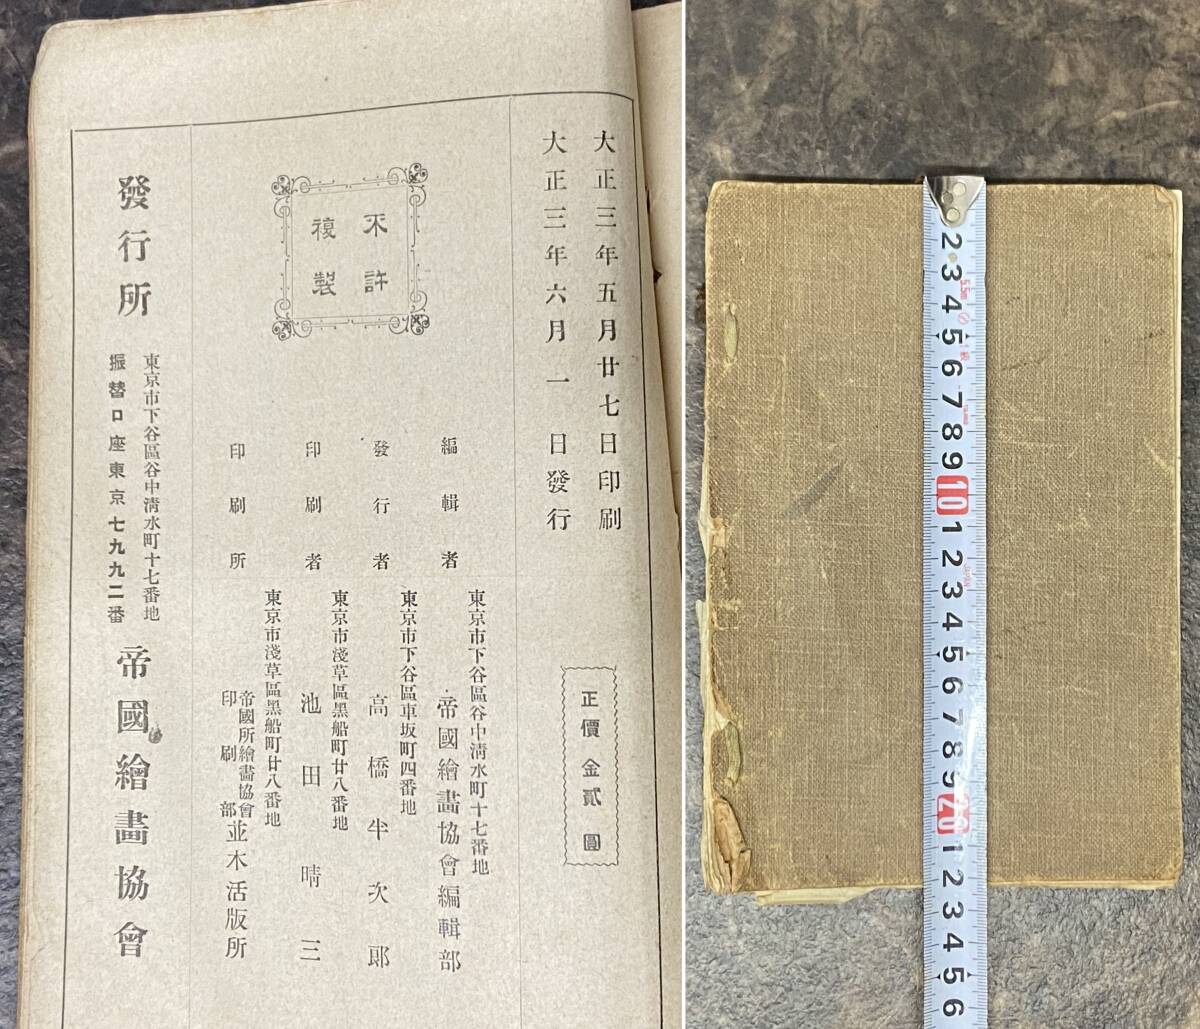 大正三年五月廿七日印刷
大正三年六月一日發行
正價金貳圓
不許
複製
編輯者
東京市下谷區谷中淸水町十七番地
帝國繪畵協會編輯部
發行者
東京市下谷區車坂町四番地
高橋半次郎
印刷者
東京市淺草區黑船町廿八番地
池田晴三
印刷所
東京市淺草區黑船町廿八番地
帝國繪畵協會
印刷部
並木活版所
發行所
東京市下谷區谷中淸水町十七番地
振替口座東京七九九二番
帝國繪畵協會
2
3
4
5
6
7
8
9
10
1
2
3
4
5
6
7
8
9
20
1
2
3
4
5
6